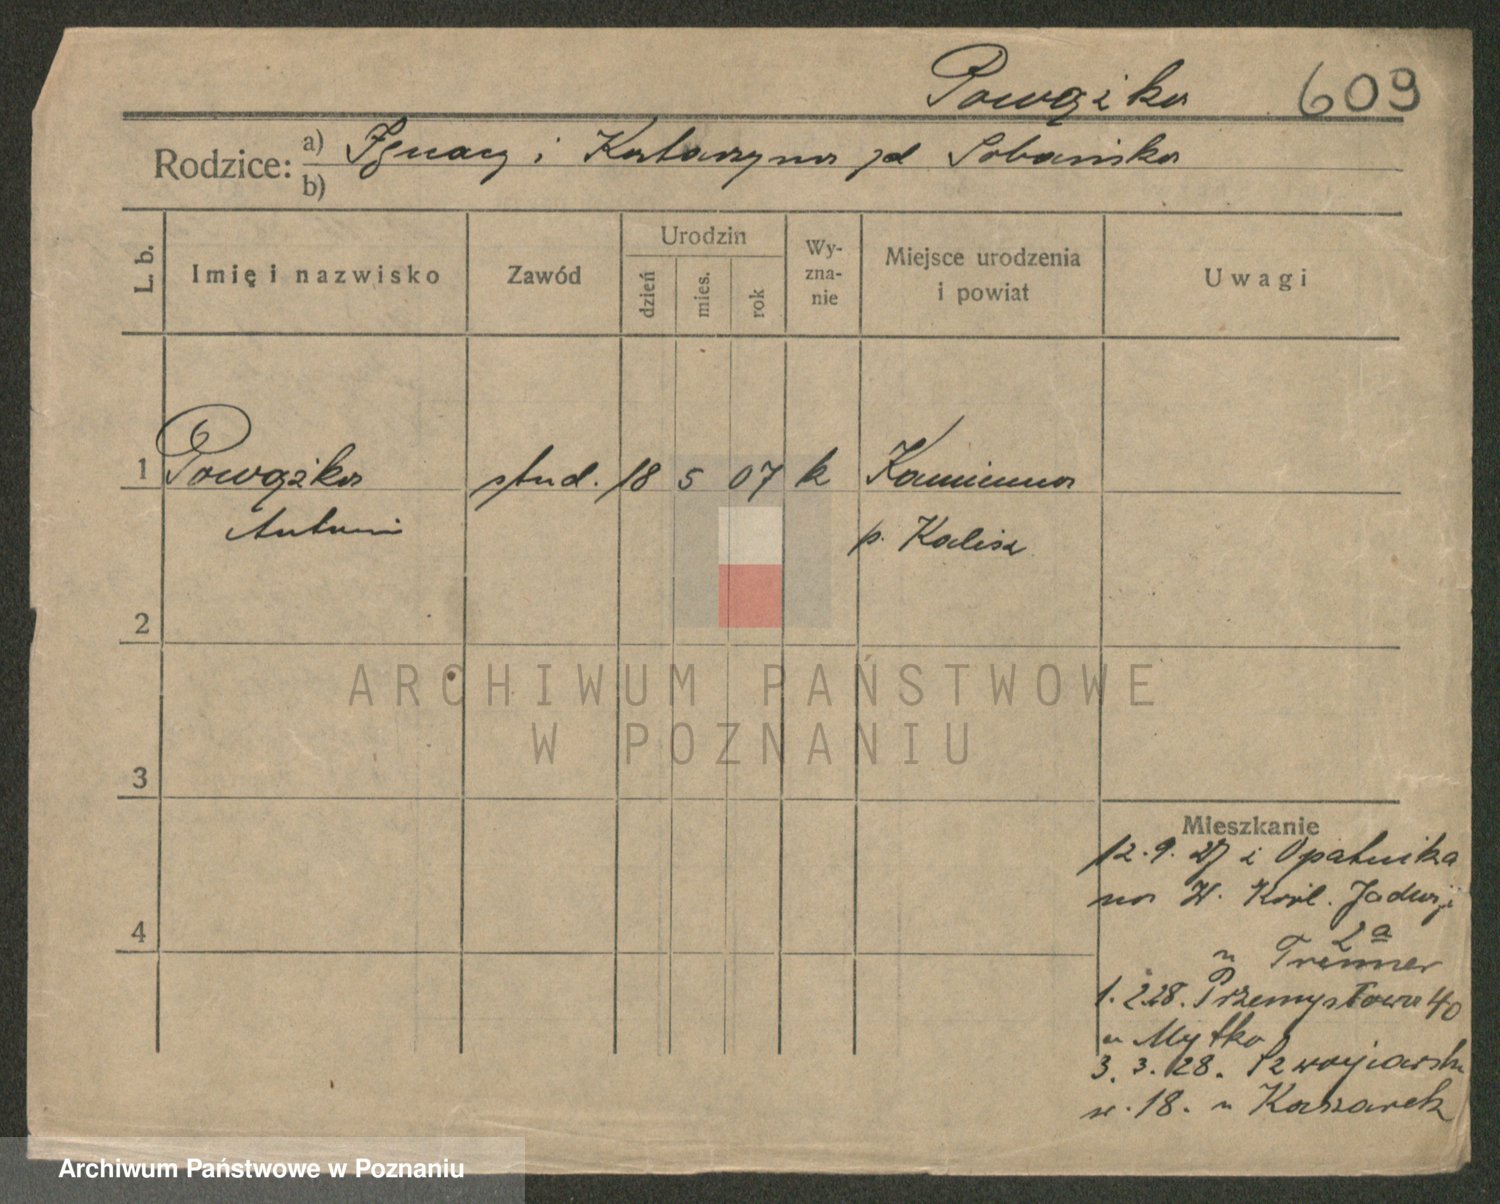 Powązka 609
Rodzice: a) Ignacy i Katarzyna zd Sobańska
b)
L. b.
Imię i nazwisko
Zawód
Urodzin
dzień
mies.
rok
Wy-
zna-
nie
Miejsce urodzenia
i powiat
Uwagi
1 Powązka stud. 18 5 07 k Kamienna
Antoni p. Kalisz
2
3
4
Mieszkanie
12.9.27 z Opatówka
na W. Król. Jadwigi
2a
u Tremmer
1.2.28. Przemysłowa 40
u Mytko
3.3.28. Szwajcarska
18. u Kaszarek
ARCHIWUM PAŃSTWOWE
W POZNANIU
Archiwum Państwowe w Poznaniu